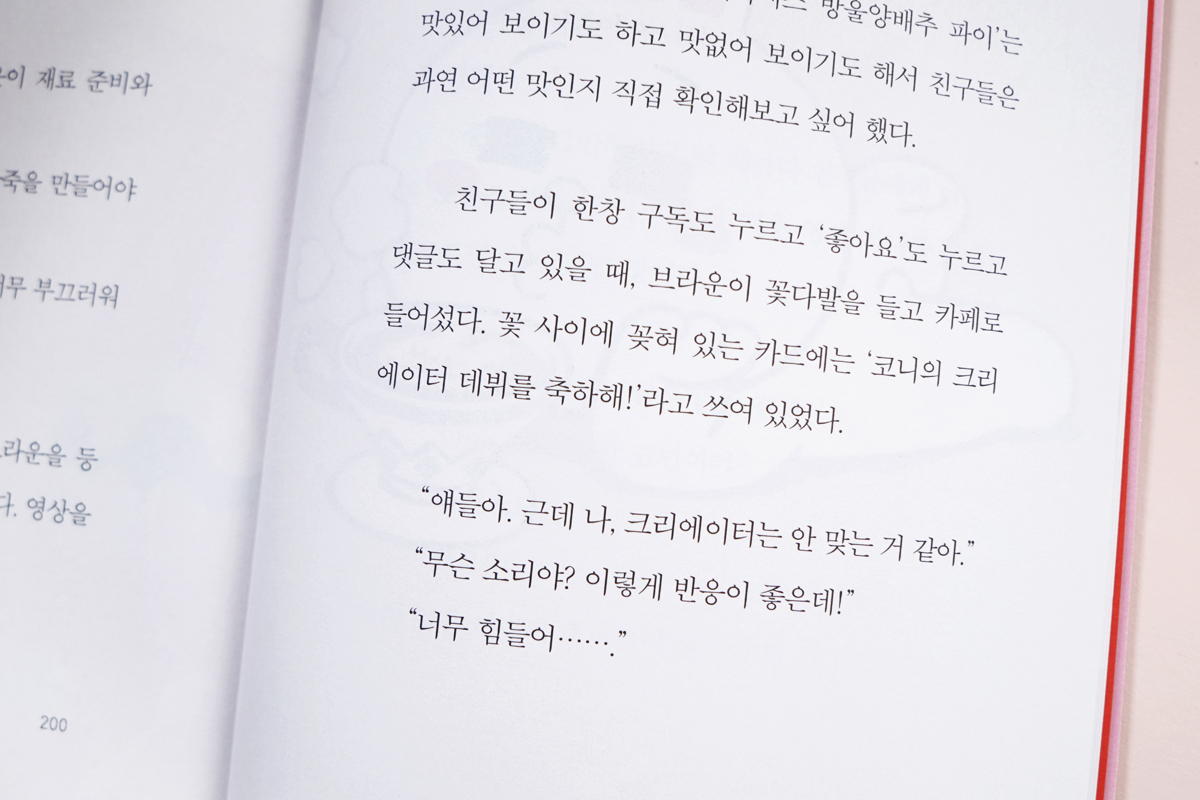 재료 준비와
죽을 만들어야
부끄러워
등
영상을
200
방울양배추 파이’는
맛있어 보이기도 하고 맛없어 보이기도 해서 친구들은
과연 어떤 맛인지 직접 확인해보고 싶어 했다.
친구들이 한창 구독도 누르고 ‘좋아요’도 누르고
댓글도 달고 있을 때, 브라운이 꽃다발을 들고 카페로
들어섰다. 꽃 사이에 꽂혀 있는 카드에는 ‘코니의 크리
에이터 데뷔를 축하해!’라고 쓰여 있었다.
“얘들아. 근데 나, 크리에이터는 안 맞는 거 같아.”
“무슨 소리야? 이렇게 반응이 좋은데!”
“너무 힘들어…….”